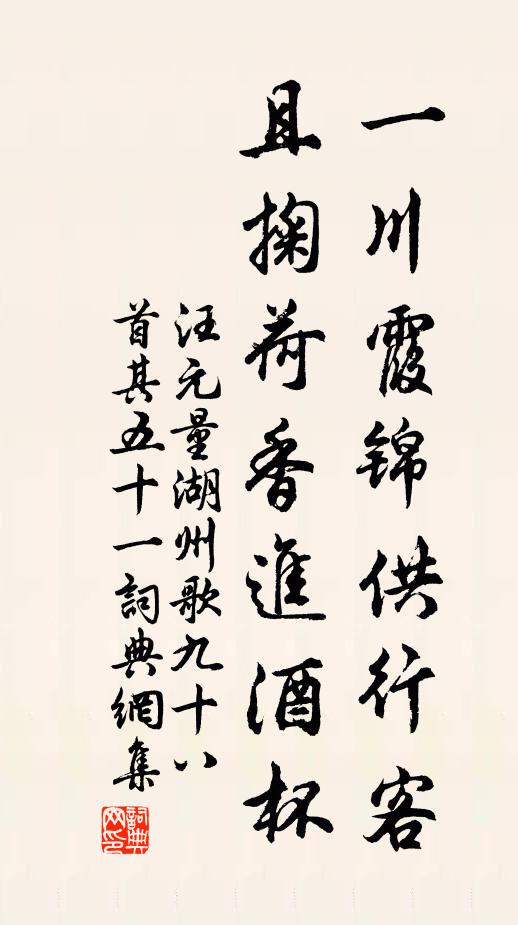 一川霞錦供行客
且掬荷香進酒杯
汪元量湖州歌九十八
首其五十一詞典網集
詞典
网印